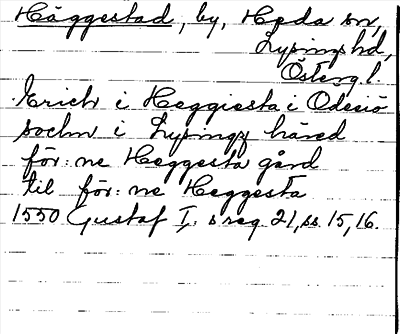 Häggestad, by, Heda sn,
Lysings hd,
Östergl.
Erich i Heggiesta i Odesiö
sochn i Lysingx häred
för: ne Heggesta gård
til för: ne Heggesta
1550 Gustaf I:s reg. 21, ss. 15, 16.